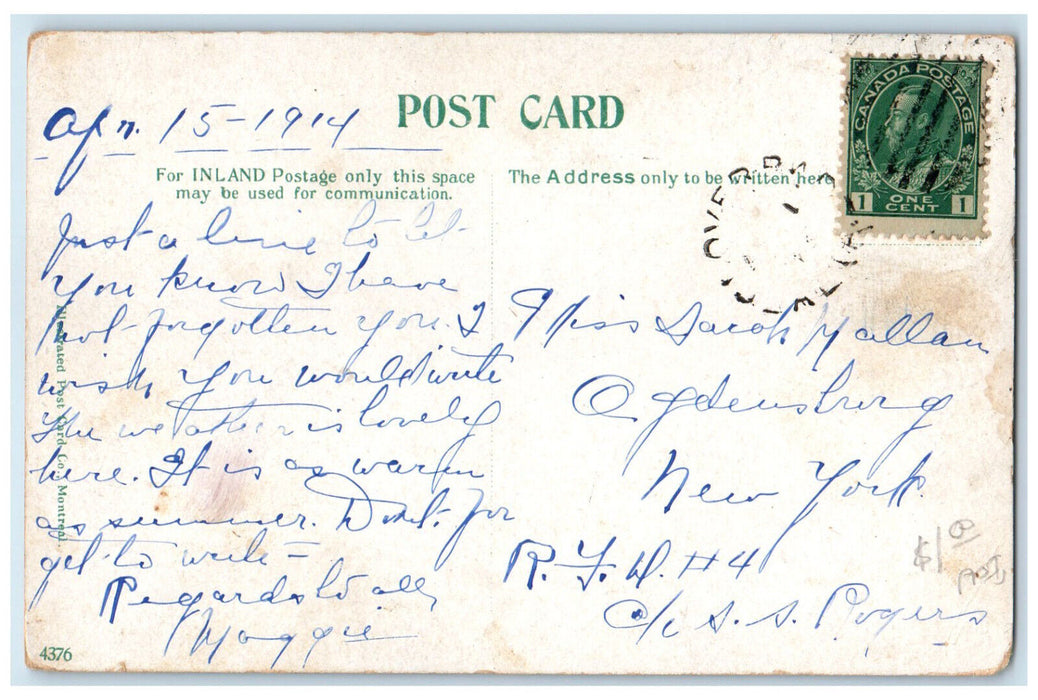 Apr. 15-1914
POST CARD
For INLAND Postage only this space
may be used for communication.
The Address only to be written here
CANADA POSTAGE
1 ONE CENT 1
Just a line to let
you know I have
not forgotten you. I
wish you would write
The weather is lovely
here. It is as warm
as summer. Don't for
get to write –
Regards to all
Maggie
Miss Sarah Hallan
Ogdensburg
New York
R.F.D. #4
c/o S. S. Rogers
$1.00
Illustrated Post Card Co., Montreal.
4376